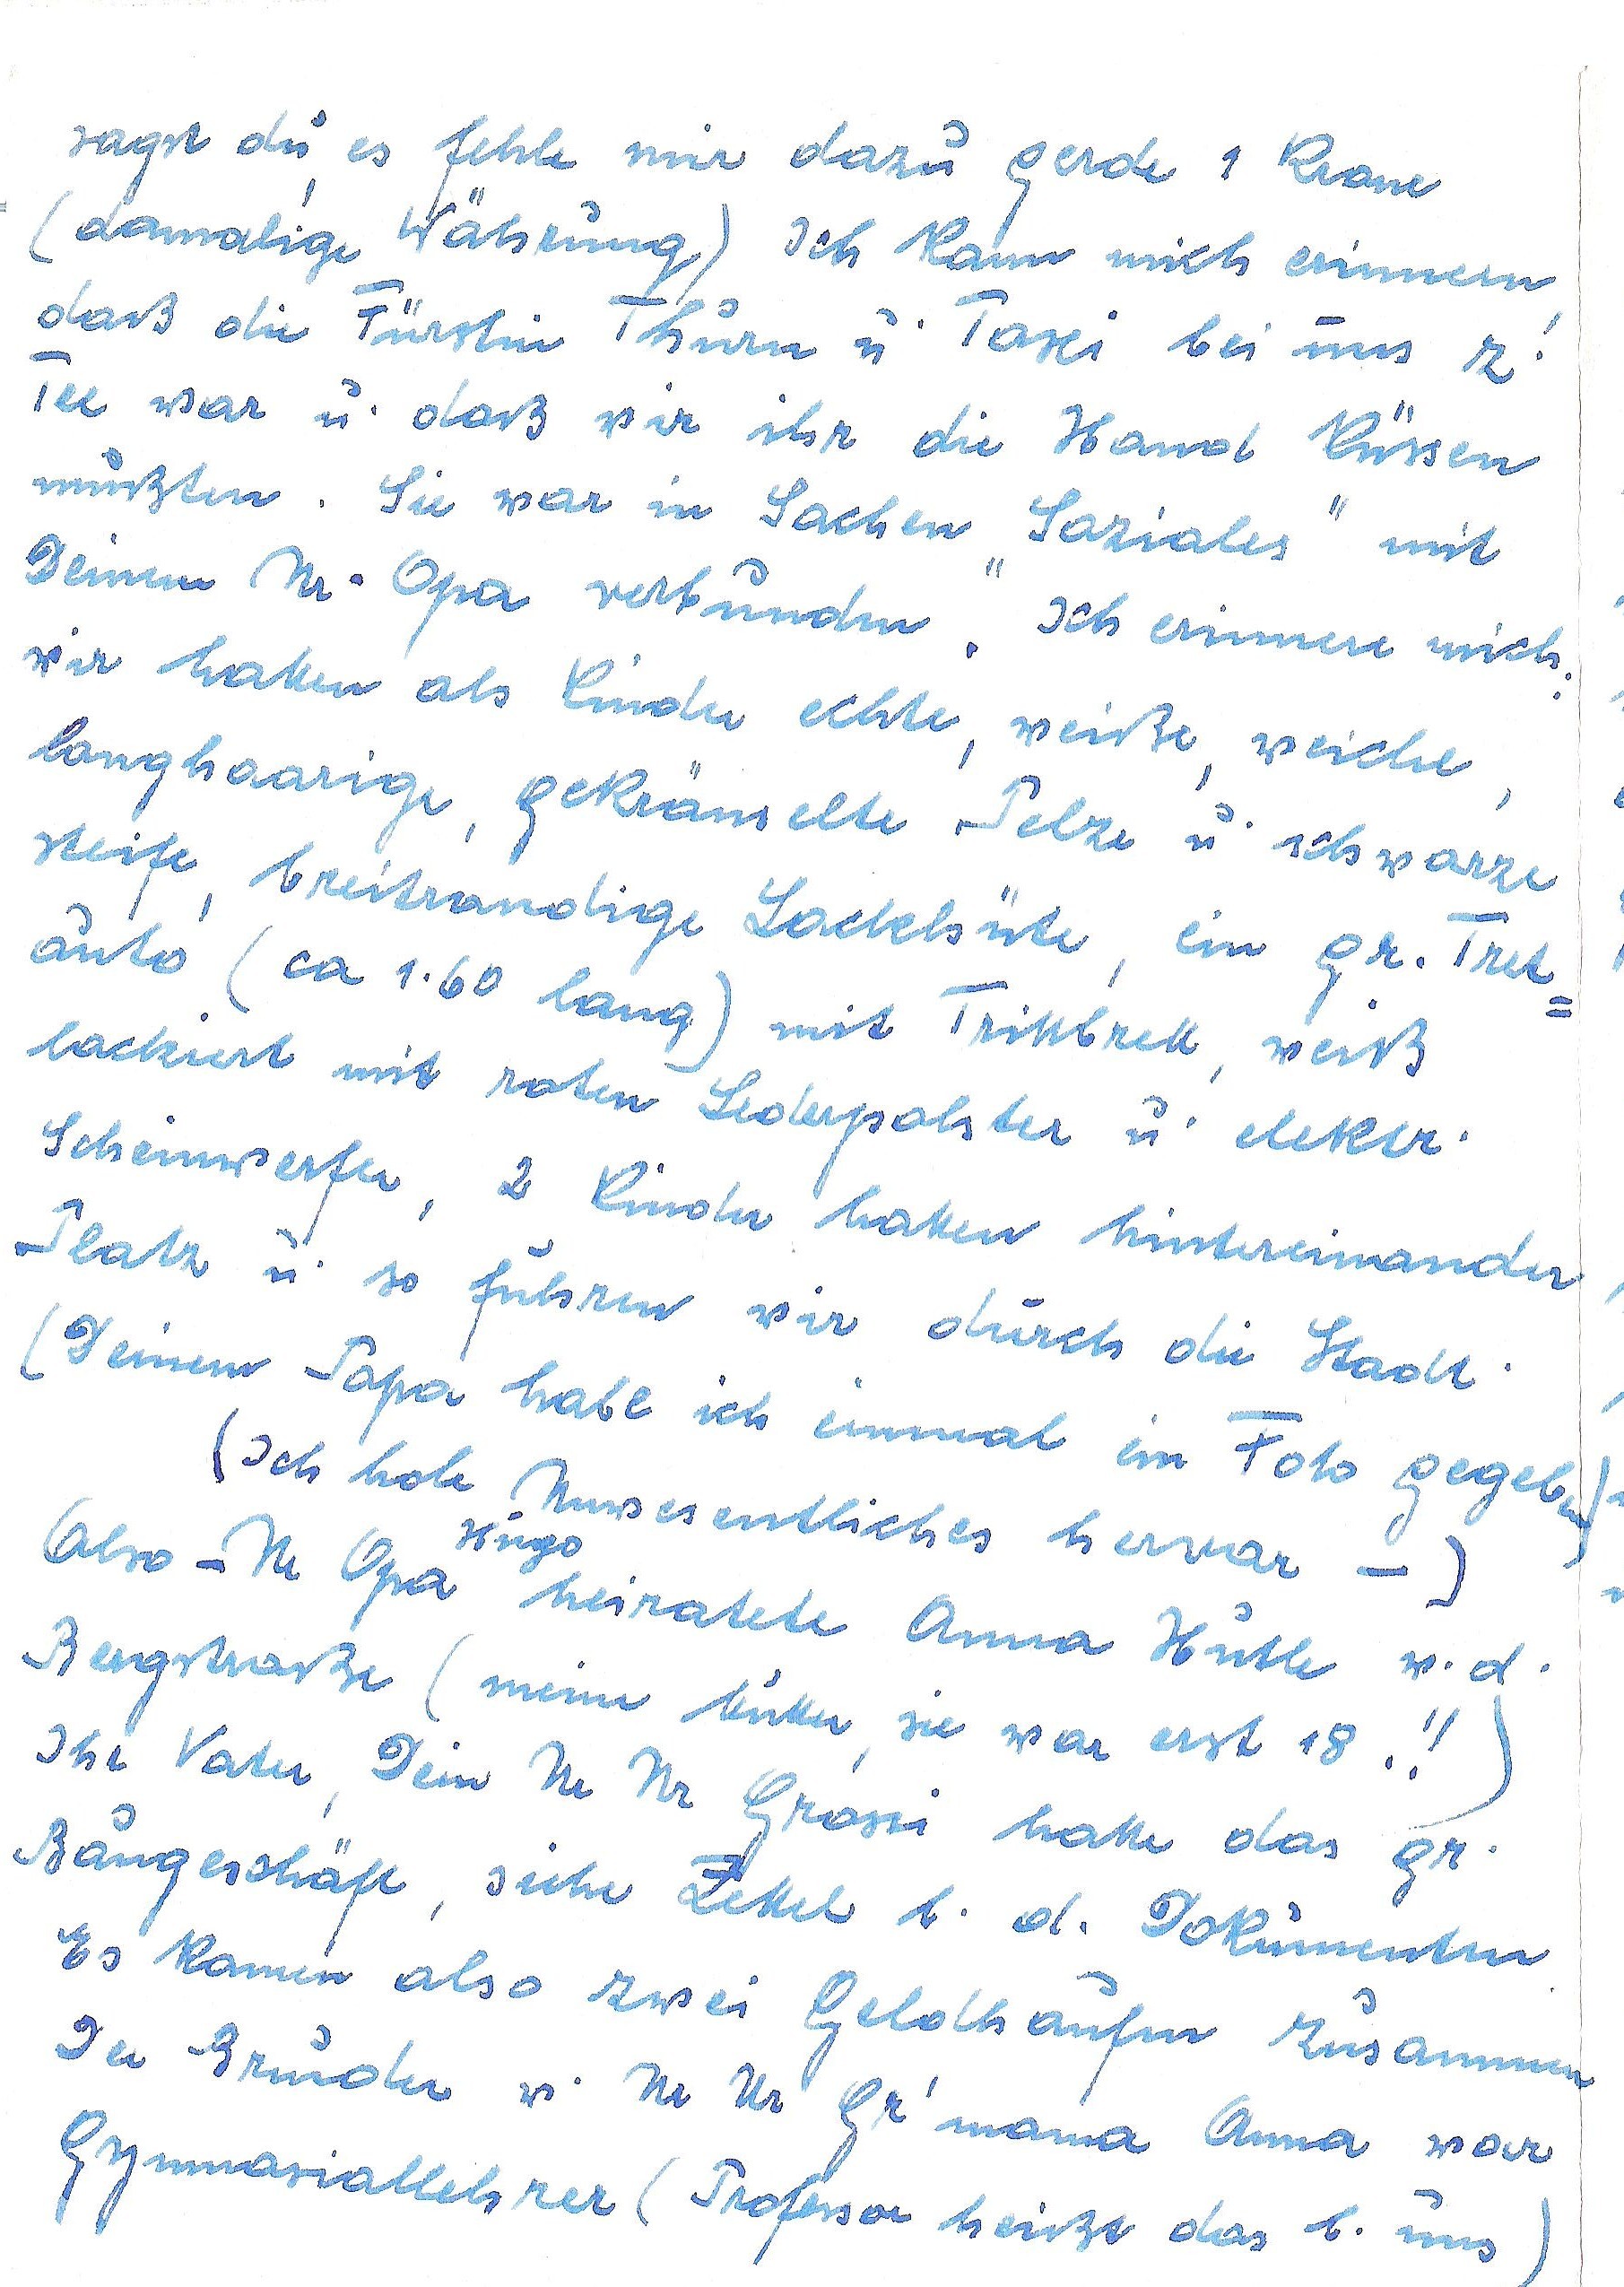 sagst du, es fehle mir dazu gerde 1 Krone
(damalige Währung) Ich kann mich erinnern,
daß die Fürstin Thurn u. Taxi bei uns z.
Tee war u. daß wir ihr die Hand küssen
mußten. Sie war in Sachen „Soziales" mit
Deinem Ur. Opa verbunden. Ich erinnere mich:
wir hatten als Kinder echte, weiße, weiche,
langhaarige, gekräuselte Pelze u. schwarze
steife, breitrandige Lackhüte, ein gr. Tret=
auto (ca 1.60 lang) mit Trittbrett, weiß
lackiert mit roten Lederpolster u. elektr.
Scheinwerfer, 2 Kinder hatten hintereinander
Platz u. so fuhren wir durch die Stadt.
(Deinem Papa habe ich einmal ein Foto gegeben)
(Ich hole Unwesentliches hervor –)
Also – Ur Opa Hugo heiratete Anna Hütle v. d.
Bergstraße (meine Mutter, sie war erst 18.!!)
Ihr Vater, Dein Ur Ur Grossi hatte das gr.
Baugeschäft, siehe Zettel b. d. Dokumenten.
Es kamen also zwei Geldhaufen zusammen
Der Bruder v. Ur Ur Gr'mama Anna war
Gymnasiallehrer (Professor heißt das b. uns)